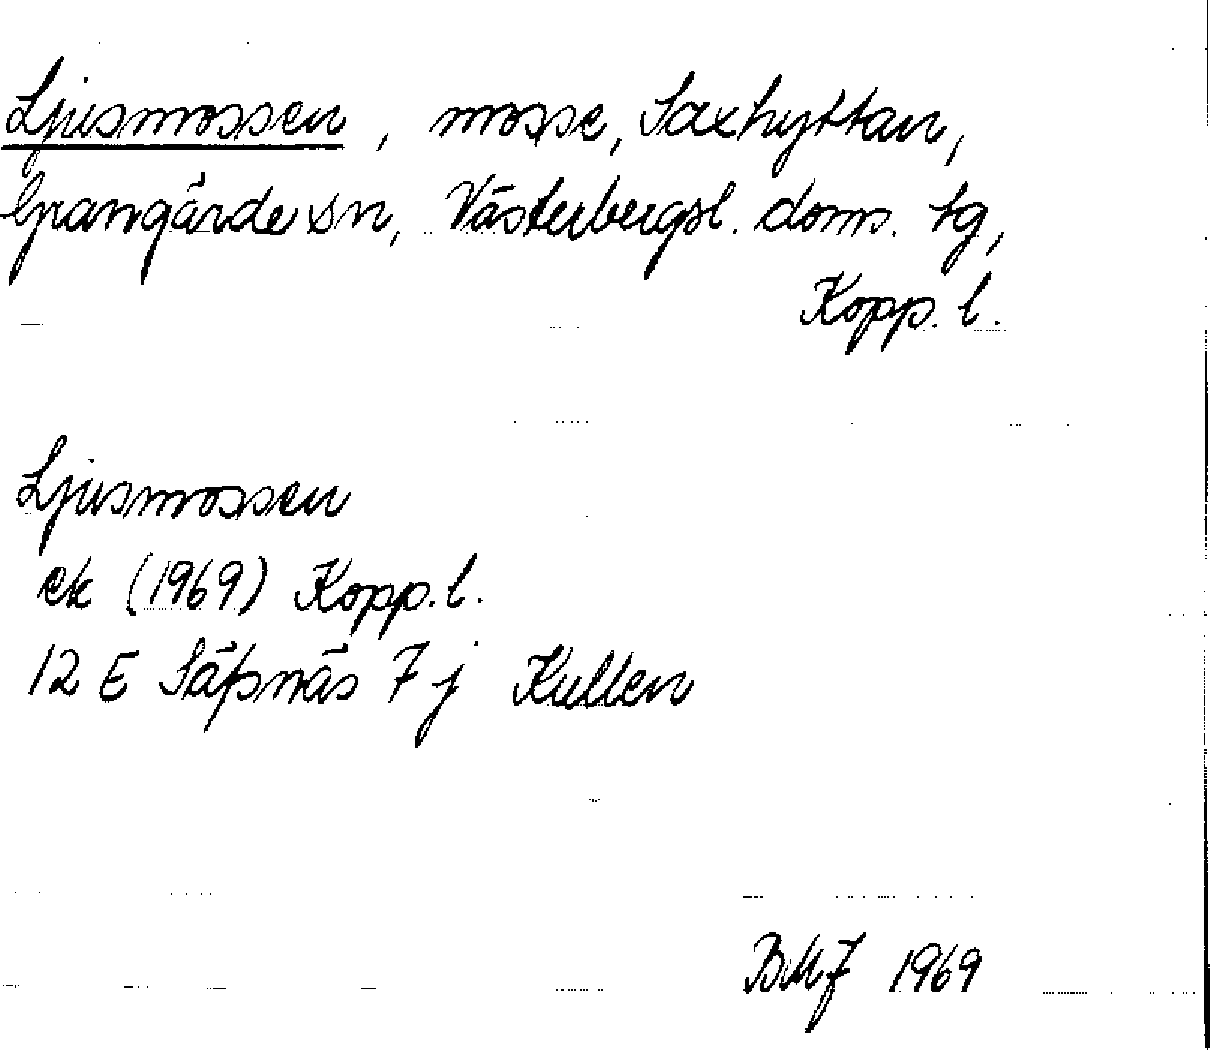 Ljusmossen, mosse, Saxhyttan,
Grangärde sn, Västerbergsl. doms. tg,
Kopp. l.
Ljusmossen
ek (1969) Kopp. l.
12 E Säfsnäs 7 j Kullen
BMJ 1969